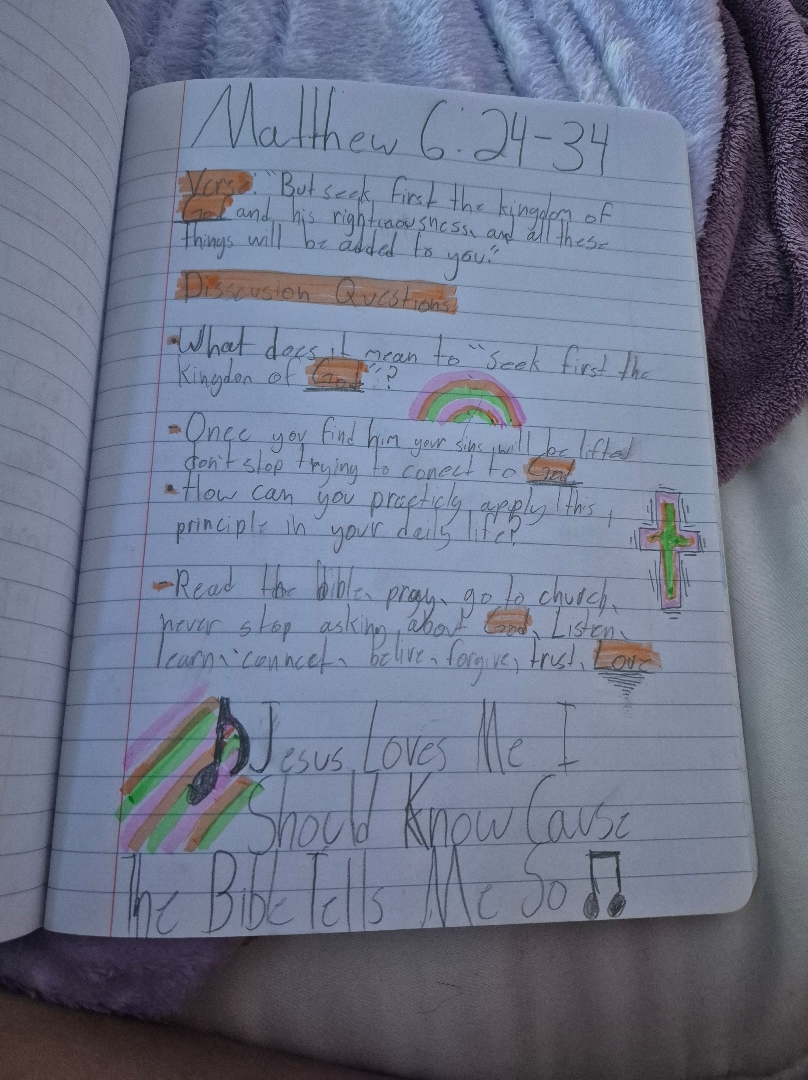 Matthew 6:24-34
Verse: "But seek first the kingdom of
God and his rightiaousness, and all these
things will be added to you."
Discussion Questions
•What does it mean to "Seek first the
Kingdon of God"?
-Once you find him your sins will be lifted
don't stop trying to conect to God
•How can you practicly apply this
principle in your daily life?
-Read the bible, pray, go to church,
never stop asking about God, Listen,
learn, connect, belive, forgive, trust, Love
Jesus Loves Me I
Should Know Cause
The Bible Tells Me So